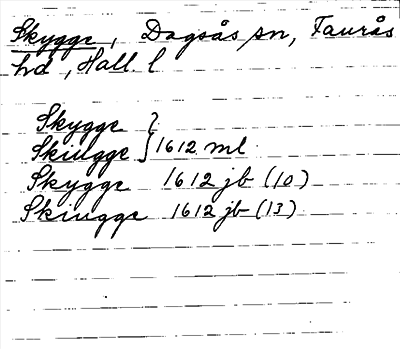 Skygge, Dagsås sn, Faurås
hd, Hall. l
Skygge }
Skiugge } 1612 ml
Skygge 1612 jb (10)
Skiugge 1612 jb (13)